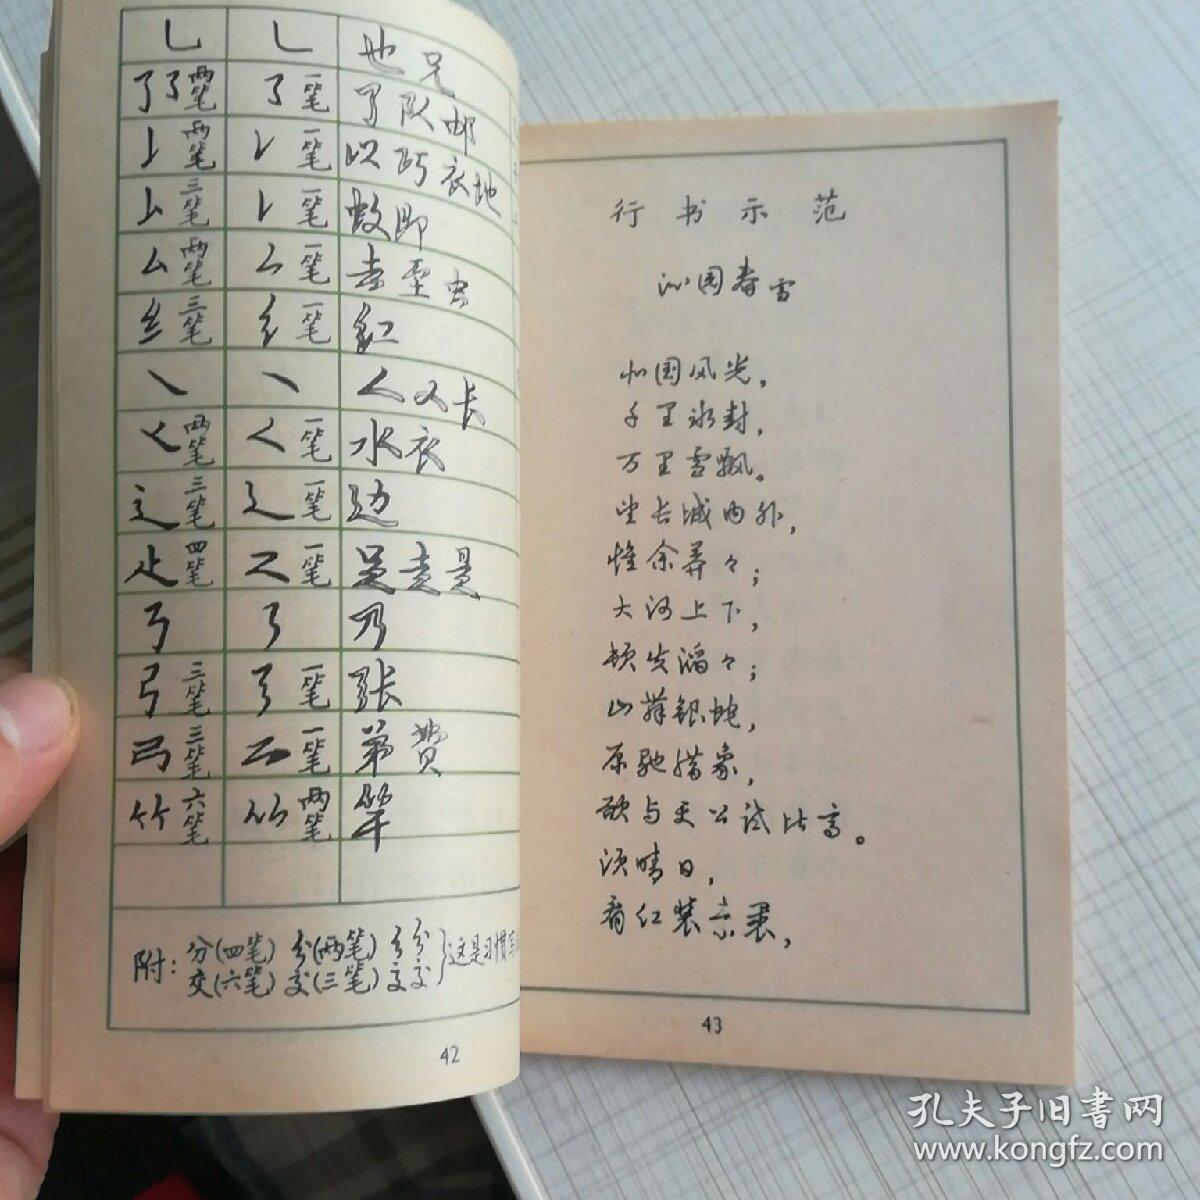 乚 乚 也 兄
了了 两笔 了 一笔 了 队 邮
两笔 一笔 以 巧 衣 地
三笔 一笔 鼓 即
厶 两笔 厶 一笔 去 至 虫
纟 三笔 纟 一笔 红
㇏ ㇏ 人 又 长
两笔 一笔 水 衣
辶 三笔 辶 一笔 边
四笔 一笔 是 走 是
㇉ 了 乃
弓 三笔 弓 一笔 张
三笔 一笔 弟 费
竹 六笔 竹 两笔 竿
附: 分(四笔) 分(两笔)
交(六笔) 交(三笔) }这是习惯写
42
行书示范
沁园春雪
北国风光,
千里冰封,
万里雪飘。
望长城内外,
惟余莽々;
大河上下,
顿失滔々;
山舞银蛇,
原驰腊象,
欲与天公试比高。
须晴日,
看红装素裹,
43
孔夫子旧书网
www.kongfz.com